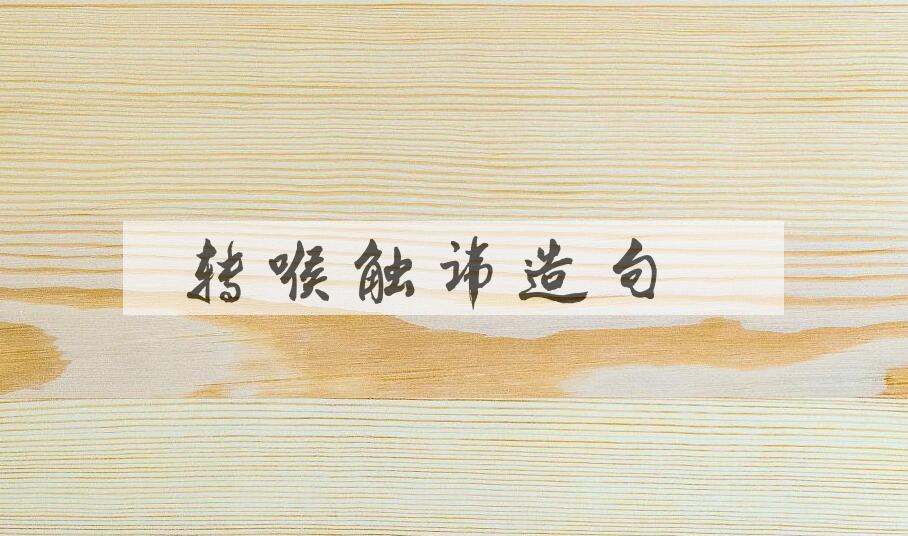 转喉触讳造句